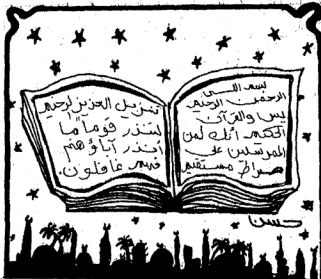 بسم اللــه
الرحمن الرحيم
يس والقرآن
الحكيم انك لمن
المرسلين على
صراط مستقيم
تنزيل العزيز الرحيم
لتنذر قوماً ما
أنذر آباؤهم
فهم غافلون.
حسن